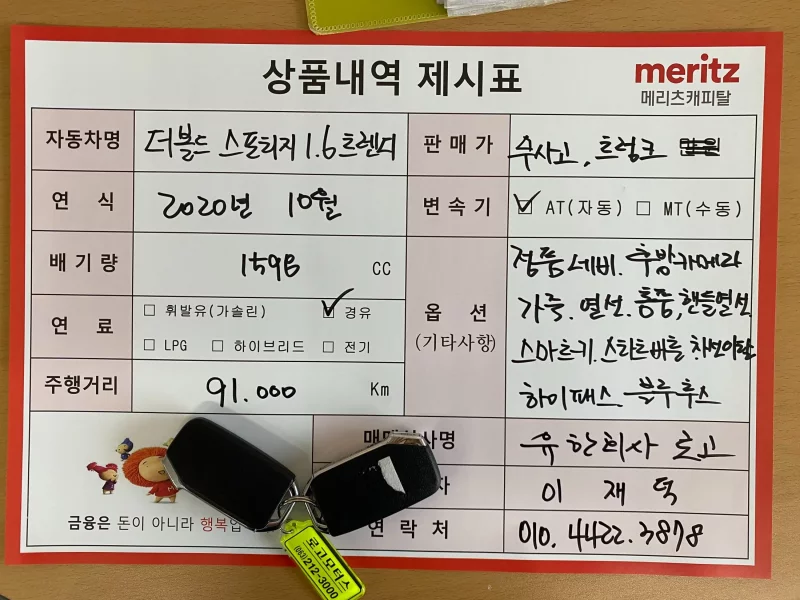 상품내역 제시표
meritz
메리츠캐피탈
자동차명 더볼드 스포티지 1.6 트렌디
판매가 무사고, 트렁크
연 식 2020년 10월
변속기 ☑ AT(자동) □ MT(수동)
배기량 1598 CC
연 료 □ 휘발유(가솔린) ☑ 경유
□ LPG □ 하이브리드 □ 전기
주행거리 91.000 Km
옵 션
(기타사항)
정품네비. 후방카메라
가죽. 열선. 통풍, 핸들열선
스마트키. 스타트버튼 차선이탈
하이패스. 블루투스
유한회사 로고
이 재 덕
연 락 처 010. 4422. 3878
금융은 돈이 아니라 행복입
로고모터스
(063)212-3000